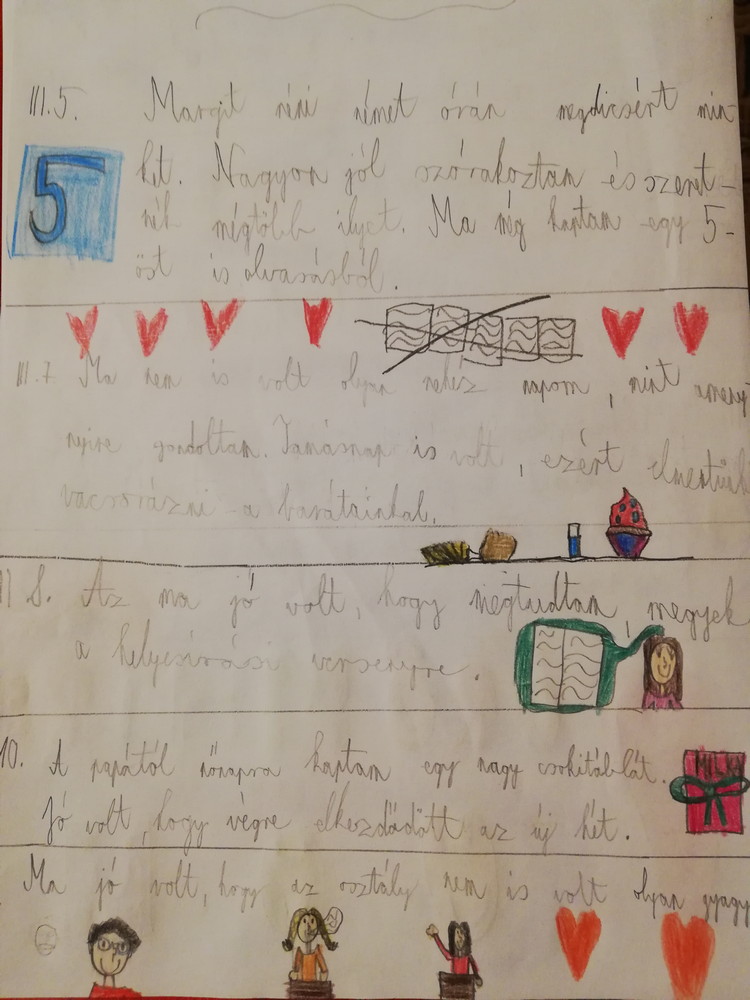 III.5. Margit néni német órán megdicsért min-
5 ket. Nagyon jól szórakoztam és szeret-
nék mégtöbb ilyet. Ma még kaptam egy 5-
öst is olvasásból.
III.7 Ma nem is volt olyan nehéz napom, mint ameny
nyire gondoltam. Tamásnap is volt, ezért elmentünk
vacsorázni a barátainkal.
II 8. Az ma jó volt, hogy megtudtam, megyek
a helyesírási versenyre.
10. A papától nőnapra kaptam egy nagy csokitáblát.
MILKA
Jó volt, hogy végre elkezdődött az új hét.
Ma jó volt, hogy az osztály nem is volt olyan gyagy